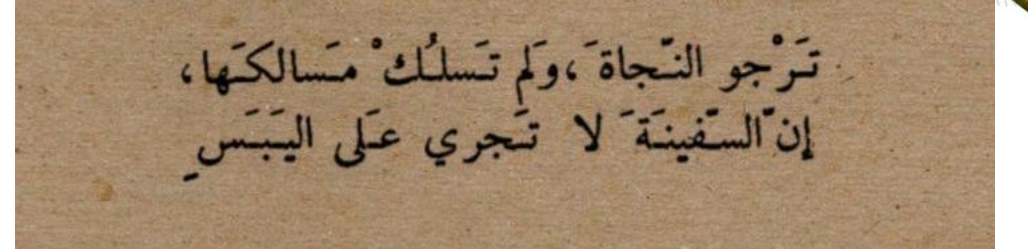 تَرْجو النّجاةَ، وَلم تَسلُكْ مَسالكَها،
إنّ السّفينَةَ لا تَجري عَلى اليَبَسِ